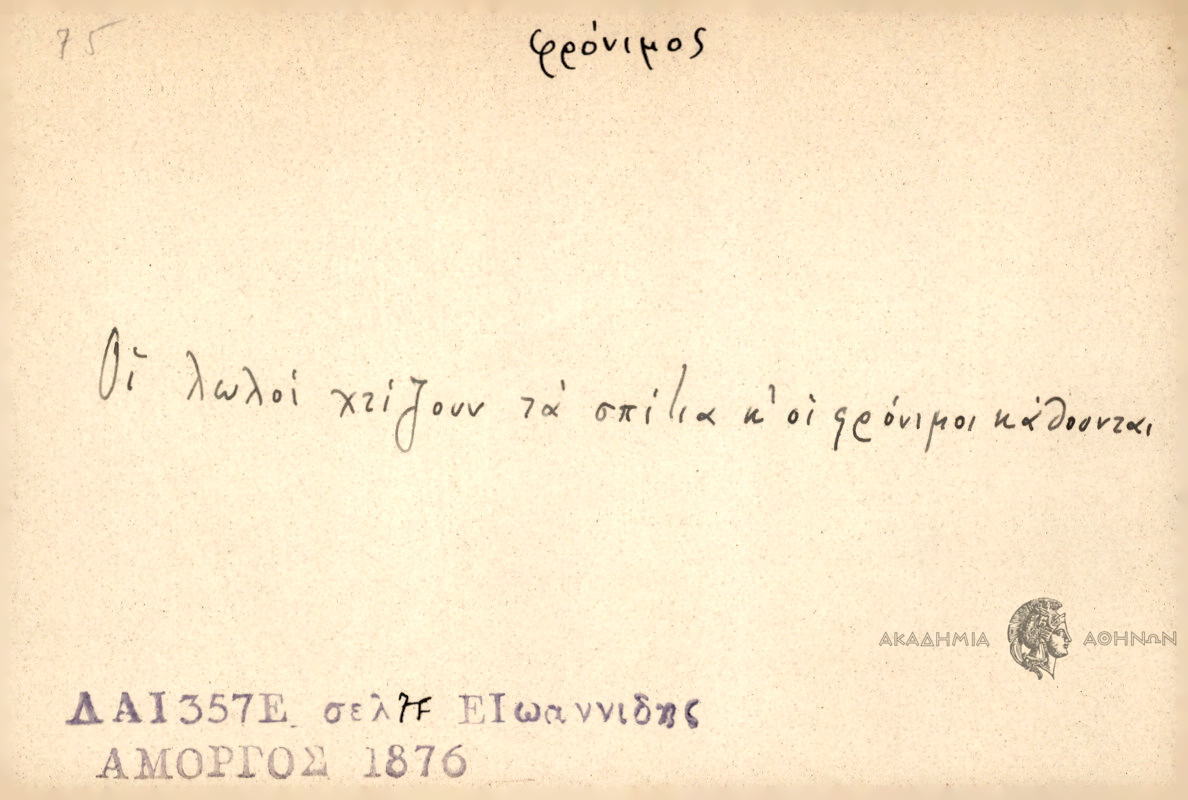 75
φρόνιμος
Οἱ λωλοί χτίζουν τά σπίτια κ' οἱ φρόνιμοι κάθουνται
ΑΚΑΔΗΜΙΑ ΑΘΗΝΩΝ
ΔΑΙ357Ε σελ ΕΙωαννιδης
ΑΜΟΡΓΟΣ 1876